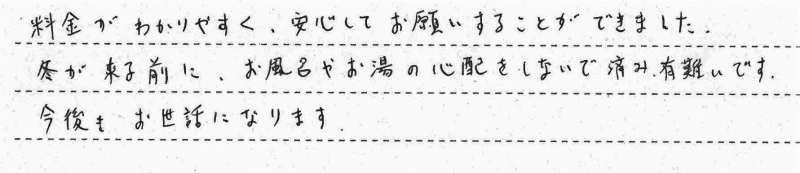 料金がわかりやすく、安心してお願いすることができました。
冬が来る前に、お風呂やお湯の心配をしないで済み、有難いです。
今後もお世話になります。